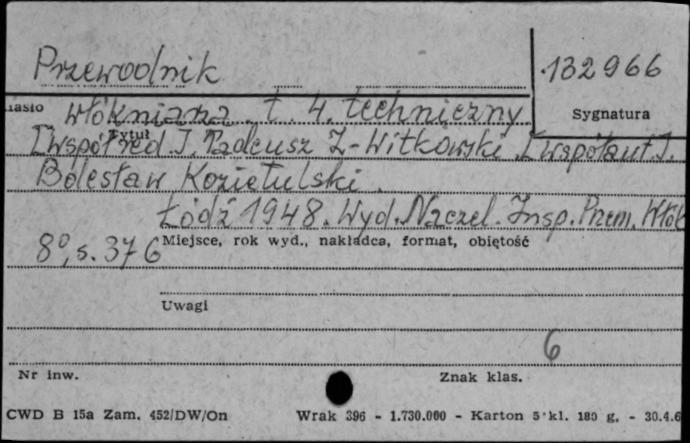 Przewodnik
132966
iasło
włókniarza. t. 4. techniczny
Sygnatura
Tytuł
[współred.]. Tadeusz Z-Witkowski. [współaut].
Bolesław Kozietulski.
Łódź 1948. Wyd. Naczel. Insp. Przem. Włók
8°, s. 376
Miejsce, rok wyd., nakładca, format, objętość
Uwagi
6
Nr inw.
Znak klas.
CWD B 15a Zam. 452/DW/On
Wrak 396 - 1.730.000 - Karton 5 kl. 180 g. - 30.4.6